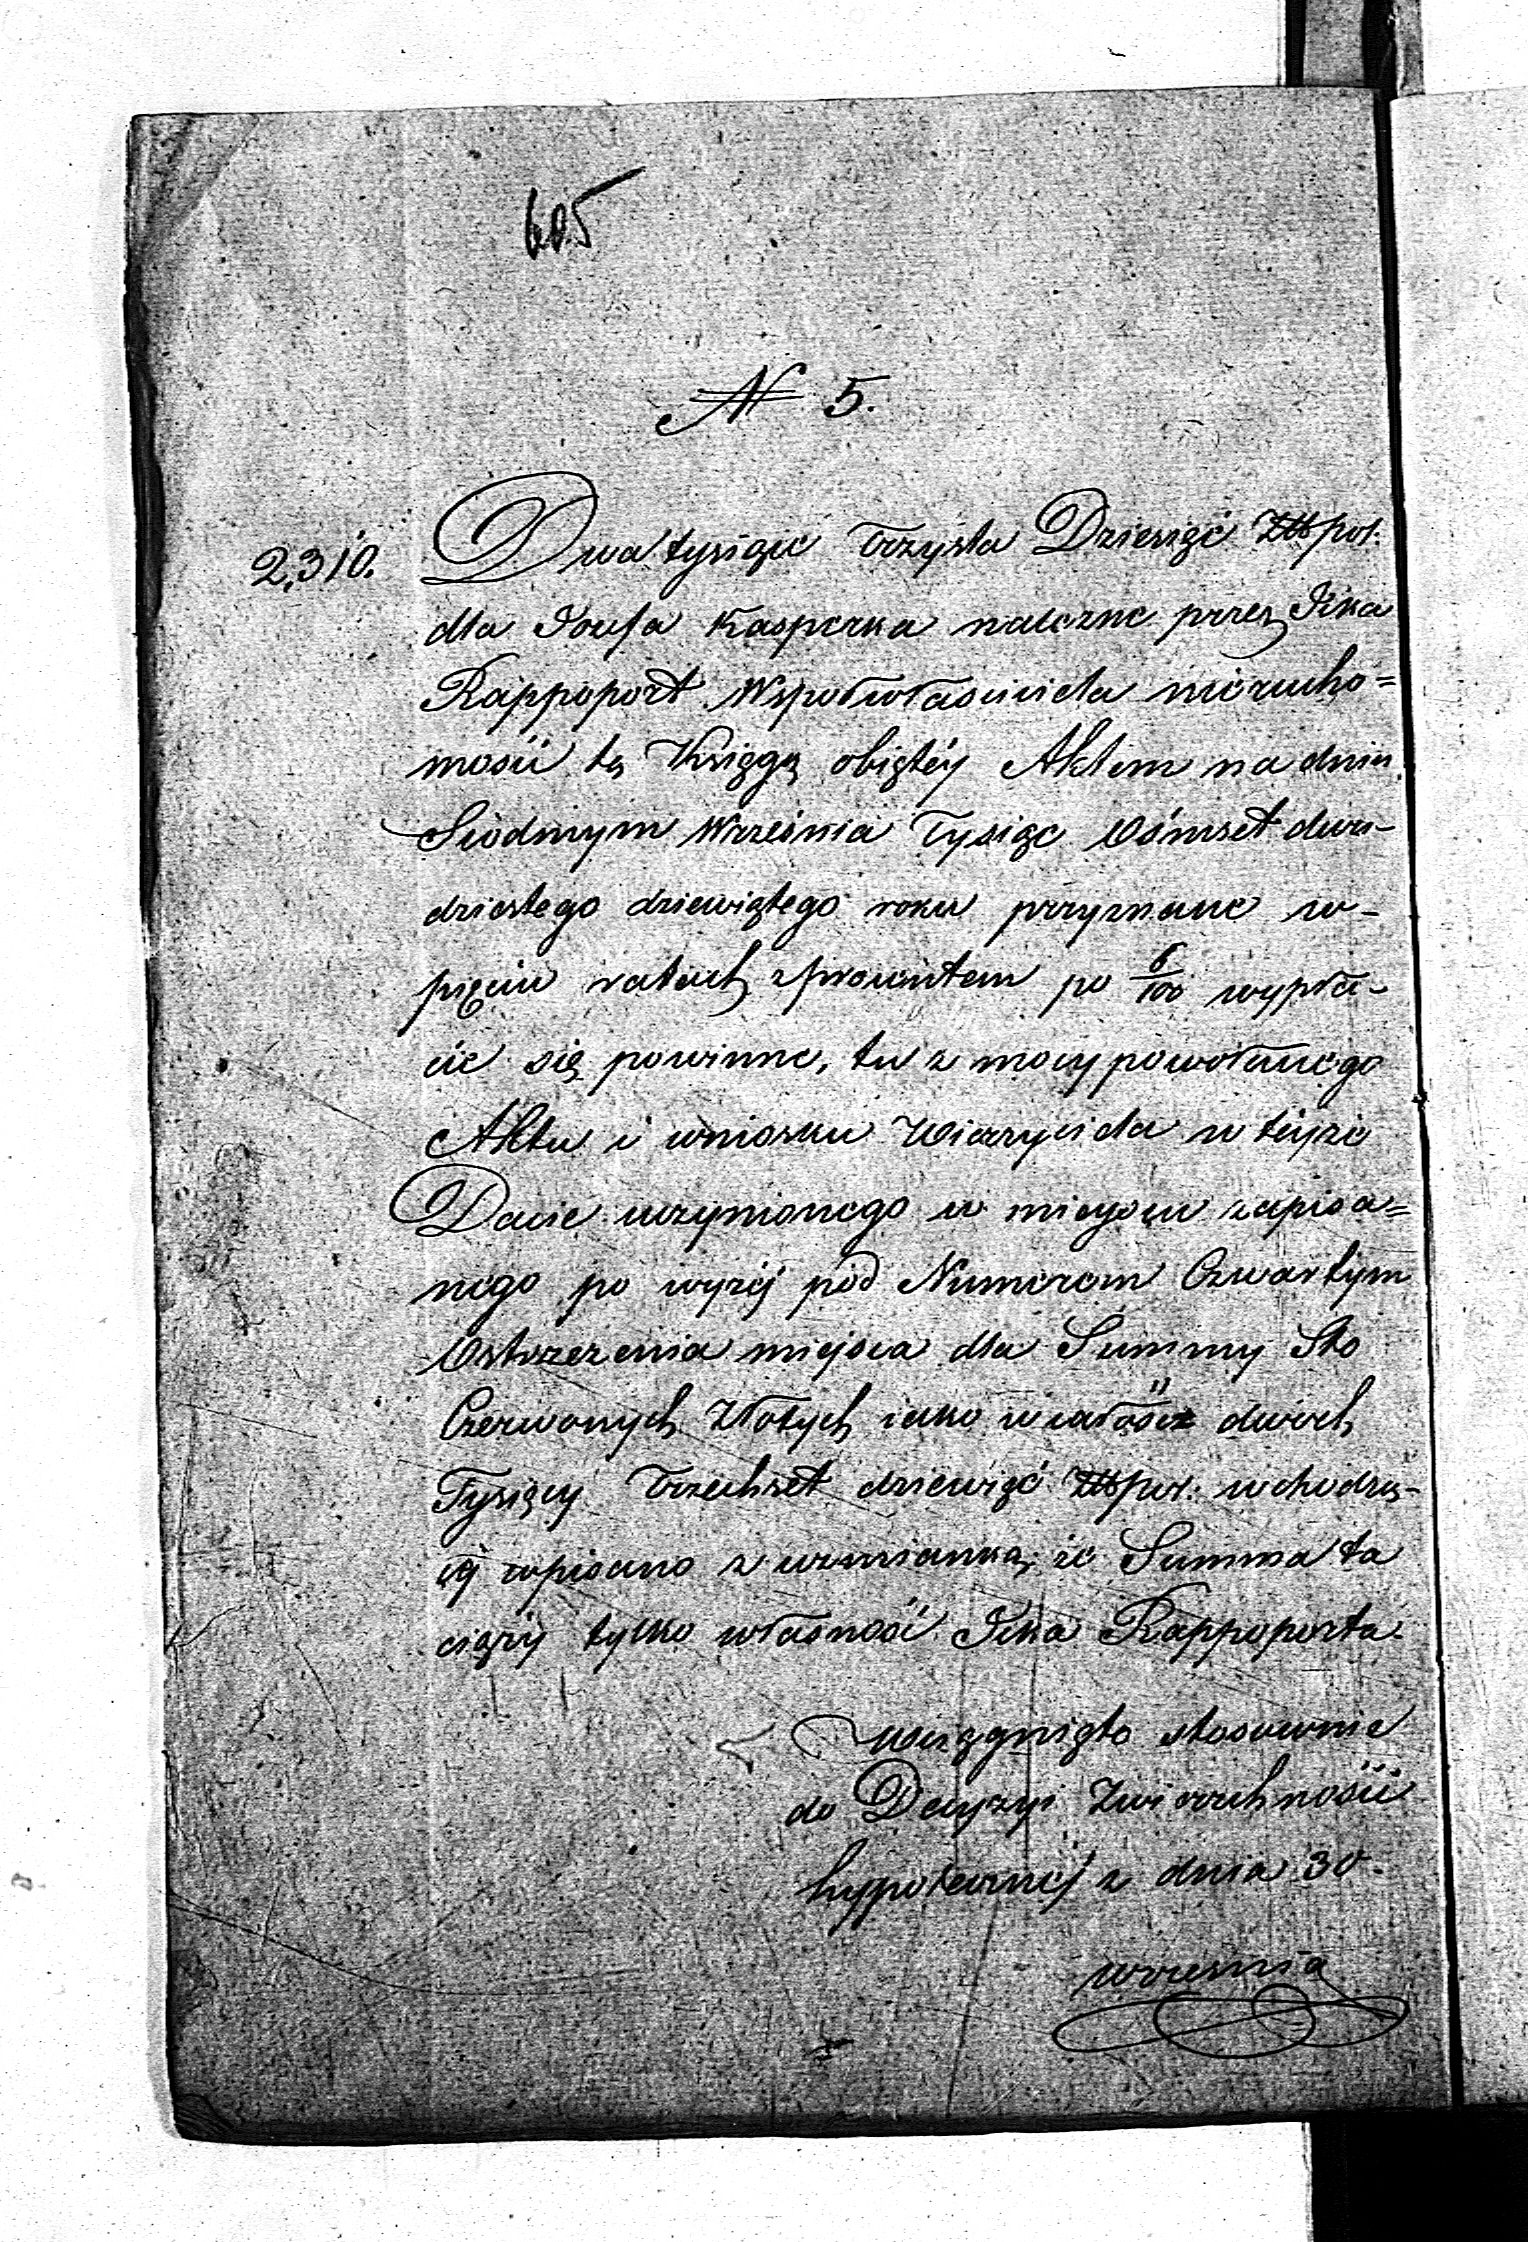 605
№ 5.
2,310. Dwa tysiące Trzysta Dziesięć Złłpol.
dla Josefa Kasperka należne przez Icka
Rappoport Wspołwłaściciela nierucho=
mości tą Księgą obiętéy Aktem na dniu
Siodmym Września Tysiąc Ośmset dwu-
dziestego dziewiątego roku przyznane w-
pięciu ratach z procentem po 6/100 wypła-
cić się powinne, tu z mocy powołanego
Aktu i wniosku Wierzyciela w teyże
Dacie uczynionego w mieyscu zapisa=
nego po wyżéj pod Numerem Czwartym
Ostrzeżenia miejsca dla Summy Sto
Czerwonych Złotych iako w całość dwóch
Tysięcy Trzechset dziewięć Złłpol. wchodzą-
céj wpisano z wzmianką że Summa ta
ciąży tylko własność Icka Rappoporta.
Wciągnięto stosownie
do Decyzyi Zwierzchności
hypotecznéj z dnia 30.
września